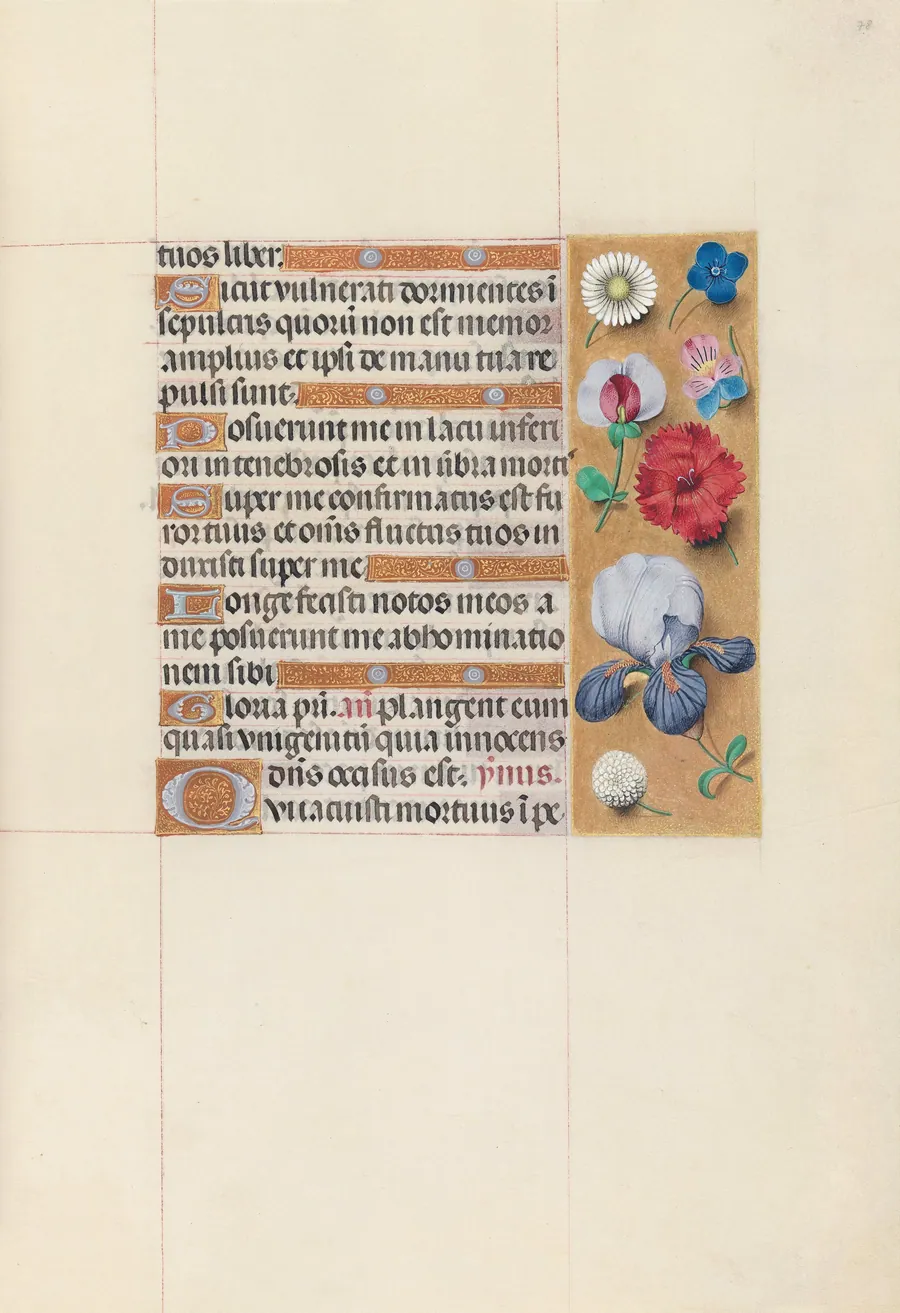 78
tuos liber.
Sicut vulnerati dormientes ī
sepulcris quorū non est memor
amplius et ipsi de manu tua re
pulsi sunt.
Posuerunt me in lacu inferi
ori in tenebrosis et in ūbra morti
Super me confirmatus est fu
ror tuus et om̄s fluctus tuos in
duxisti super me
Longe fecisti notos meos a
me posuerunt me abhominatio
nem sibi
Gloria pr̄i. an̄ Plangent eum
quasi vnigenitū quia innocens
dn̄s occisus est. ẏmus.
Qui iacuisti mortuus ī pe